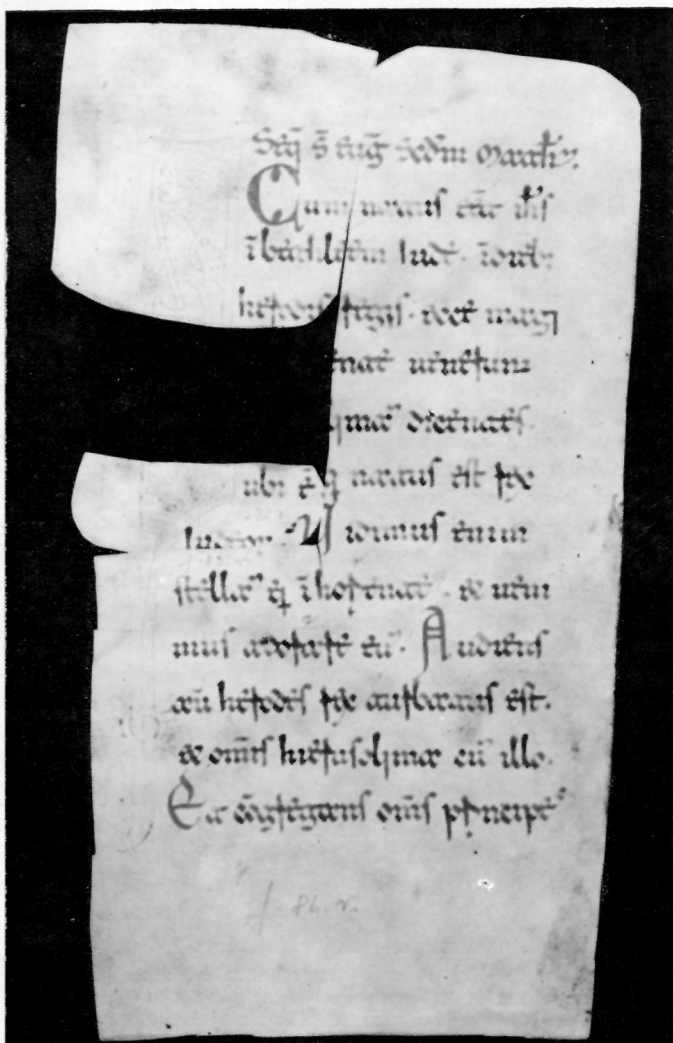 Seq̄ s̄ euḡ secdm Matthm.
Cum natus eēt ih̄s
ī bethleem Iudē · ī dieb;
herodis regis · ecce magi
uenerun
lima dicentes.
ubi ē q natus est rex
iudeor Vidimus enim
stellā eī ī oriente · & ueni
mus adorare eū · Audiens
aū herodes rex turbatus est.
& om̄is hierusolima cū illo.
Et c̄gregans om̄s principes
f. 86. r.